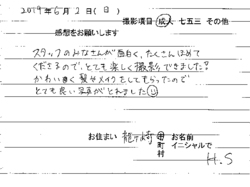 2019年6月2日(日)
撮影項目 成人 七五三 その他
感想をお願いします
スタッフのみなさんが面白く、たくさんほめて
くださるので、とても楽しく撮影できました!
かわいく髪やメイクをしてもらったので
とても良い写真がとれました
お住まい 龍ヶ崎 市町村 お名前 イニシャルで H.S